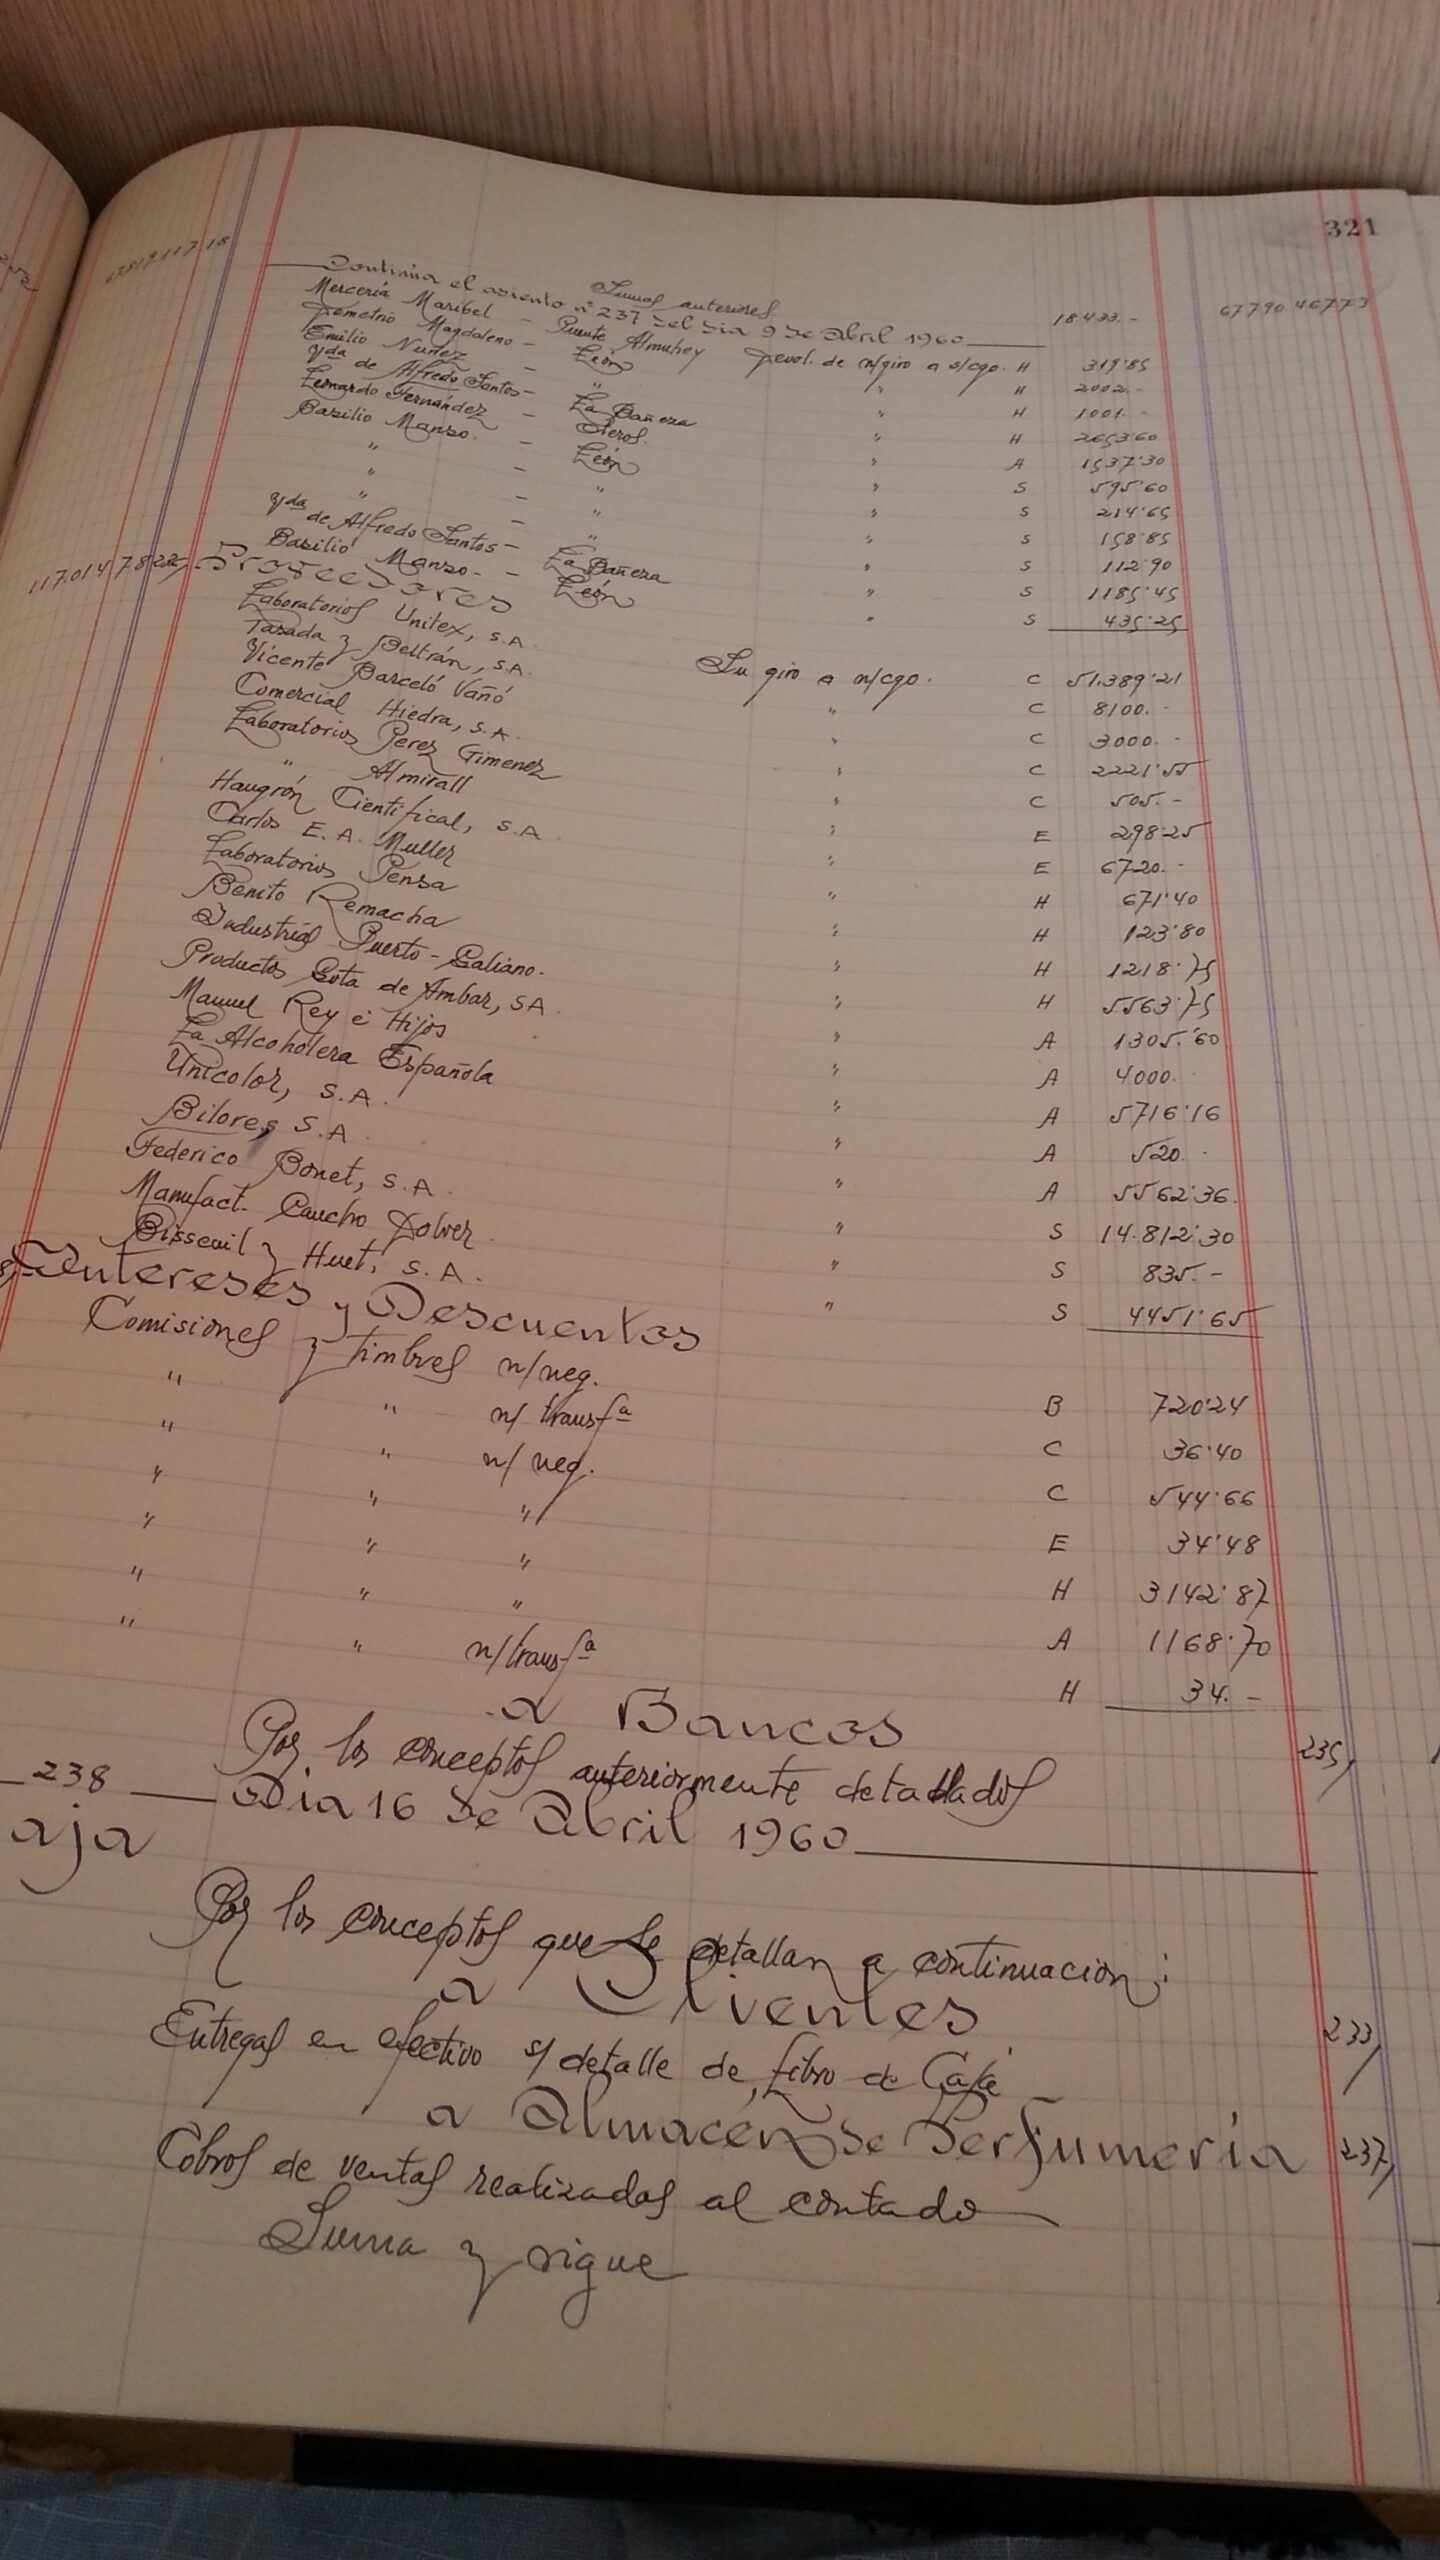 321
Sumas anteriores 18.433.- 67790.467'73
67819.117'18
Continúa el asiento nº 237 del día 9 de Abril 1960
Mercería Maribel - Puente Almuhey Devol. de n/giro a s/cgo. H 319'85
Demetrio Magdaleno - León " H 2002.-
Emilio Nuñez - " " H 1001.-
Vda de Alfredo Santos - La Bañeza " H 2653'60
Leonardo Fernández - Oteros. " A 1537'30
Basilio Manso. - León " S 595'60
" - " " S 214'65
" - " " S 158'85
" - " " S 112'90
Vda de Alfredo Santos - La Bañeza " S 1185'45
Basilio Manso. - León " S 435'25
Proveedores
Laboratorios Unitex, S.A. Su giro a n/cgo. C 51.389'21
Tasada y Beltrán, S.A. " C 8100.-
Vicente Barceló Vañó " C 3000.-
Comercial Hiedra, S.A. " C 2221'55
Laboratorios Perez Gimenez " C 505.-
" Almirall " E 298'25
Haugrón Cientifical, S.A. " E 6720.-
Carlos E. A. Muller " H 671'40
Laboratorios Pensa " H 123'80
Benito Remacha " H 1218'75
Industrias Puerto-Galiano. " H 5563'75
Productos Gota de Ambar, SA. " A 1305.'60
Manuel Rey é Hijos " A 4000.-
La Alcoholera Española " A 5716'16
Unicolor, S.A. " A 520.-
Bilores, S.A. " A 5562'36
Federico Bonet, S.A. " S 14.812'30
Manufact. Caucho Dolver " S 835.-
Bisseuil y Huet, S.A. " S 4451'65
Intereses y Descuentos
Comisiones y timbres n/neg. B 720'24
" " n/transfª C 36'40
" " n/neg. C 544'66
" " " E 34'48
" " " H 3142'87
" " " A 1168'70
" " n/transfª H 34.-
a Bancos 235
Por los conceptos anteriormente detallados
238 Dia 16 de Abril 1960
aja
Por los conceptos que se detallan a continuacion:
a Clientes 233
Entregas en efectivo s/ detalle de Libro de Caja
a Almacén de Perfumería 237
Cobros de ventas realizadas al contado
Suma y sigue